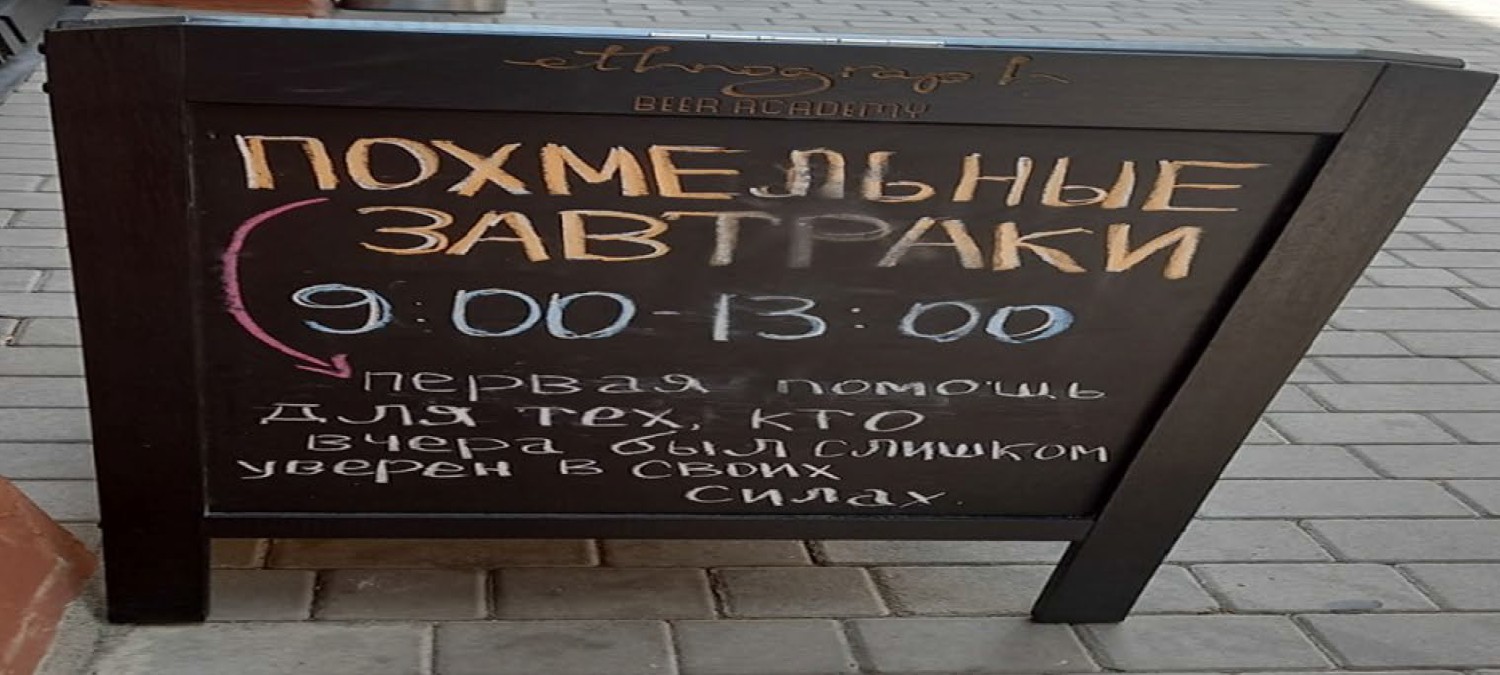 ethnograph
BEER ACADEMY
ПОХМЕЛЬНЫЕ
ЗАВТРАКИ
9:00-13:00
первая помощь
для тех, кто
вчера был слишком
уверен в своих
силах.